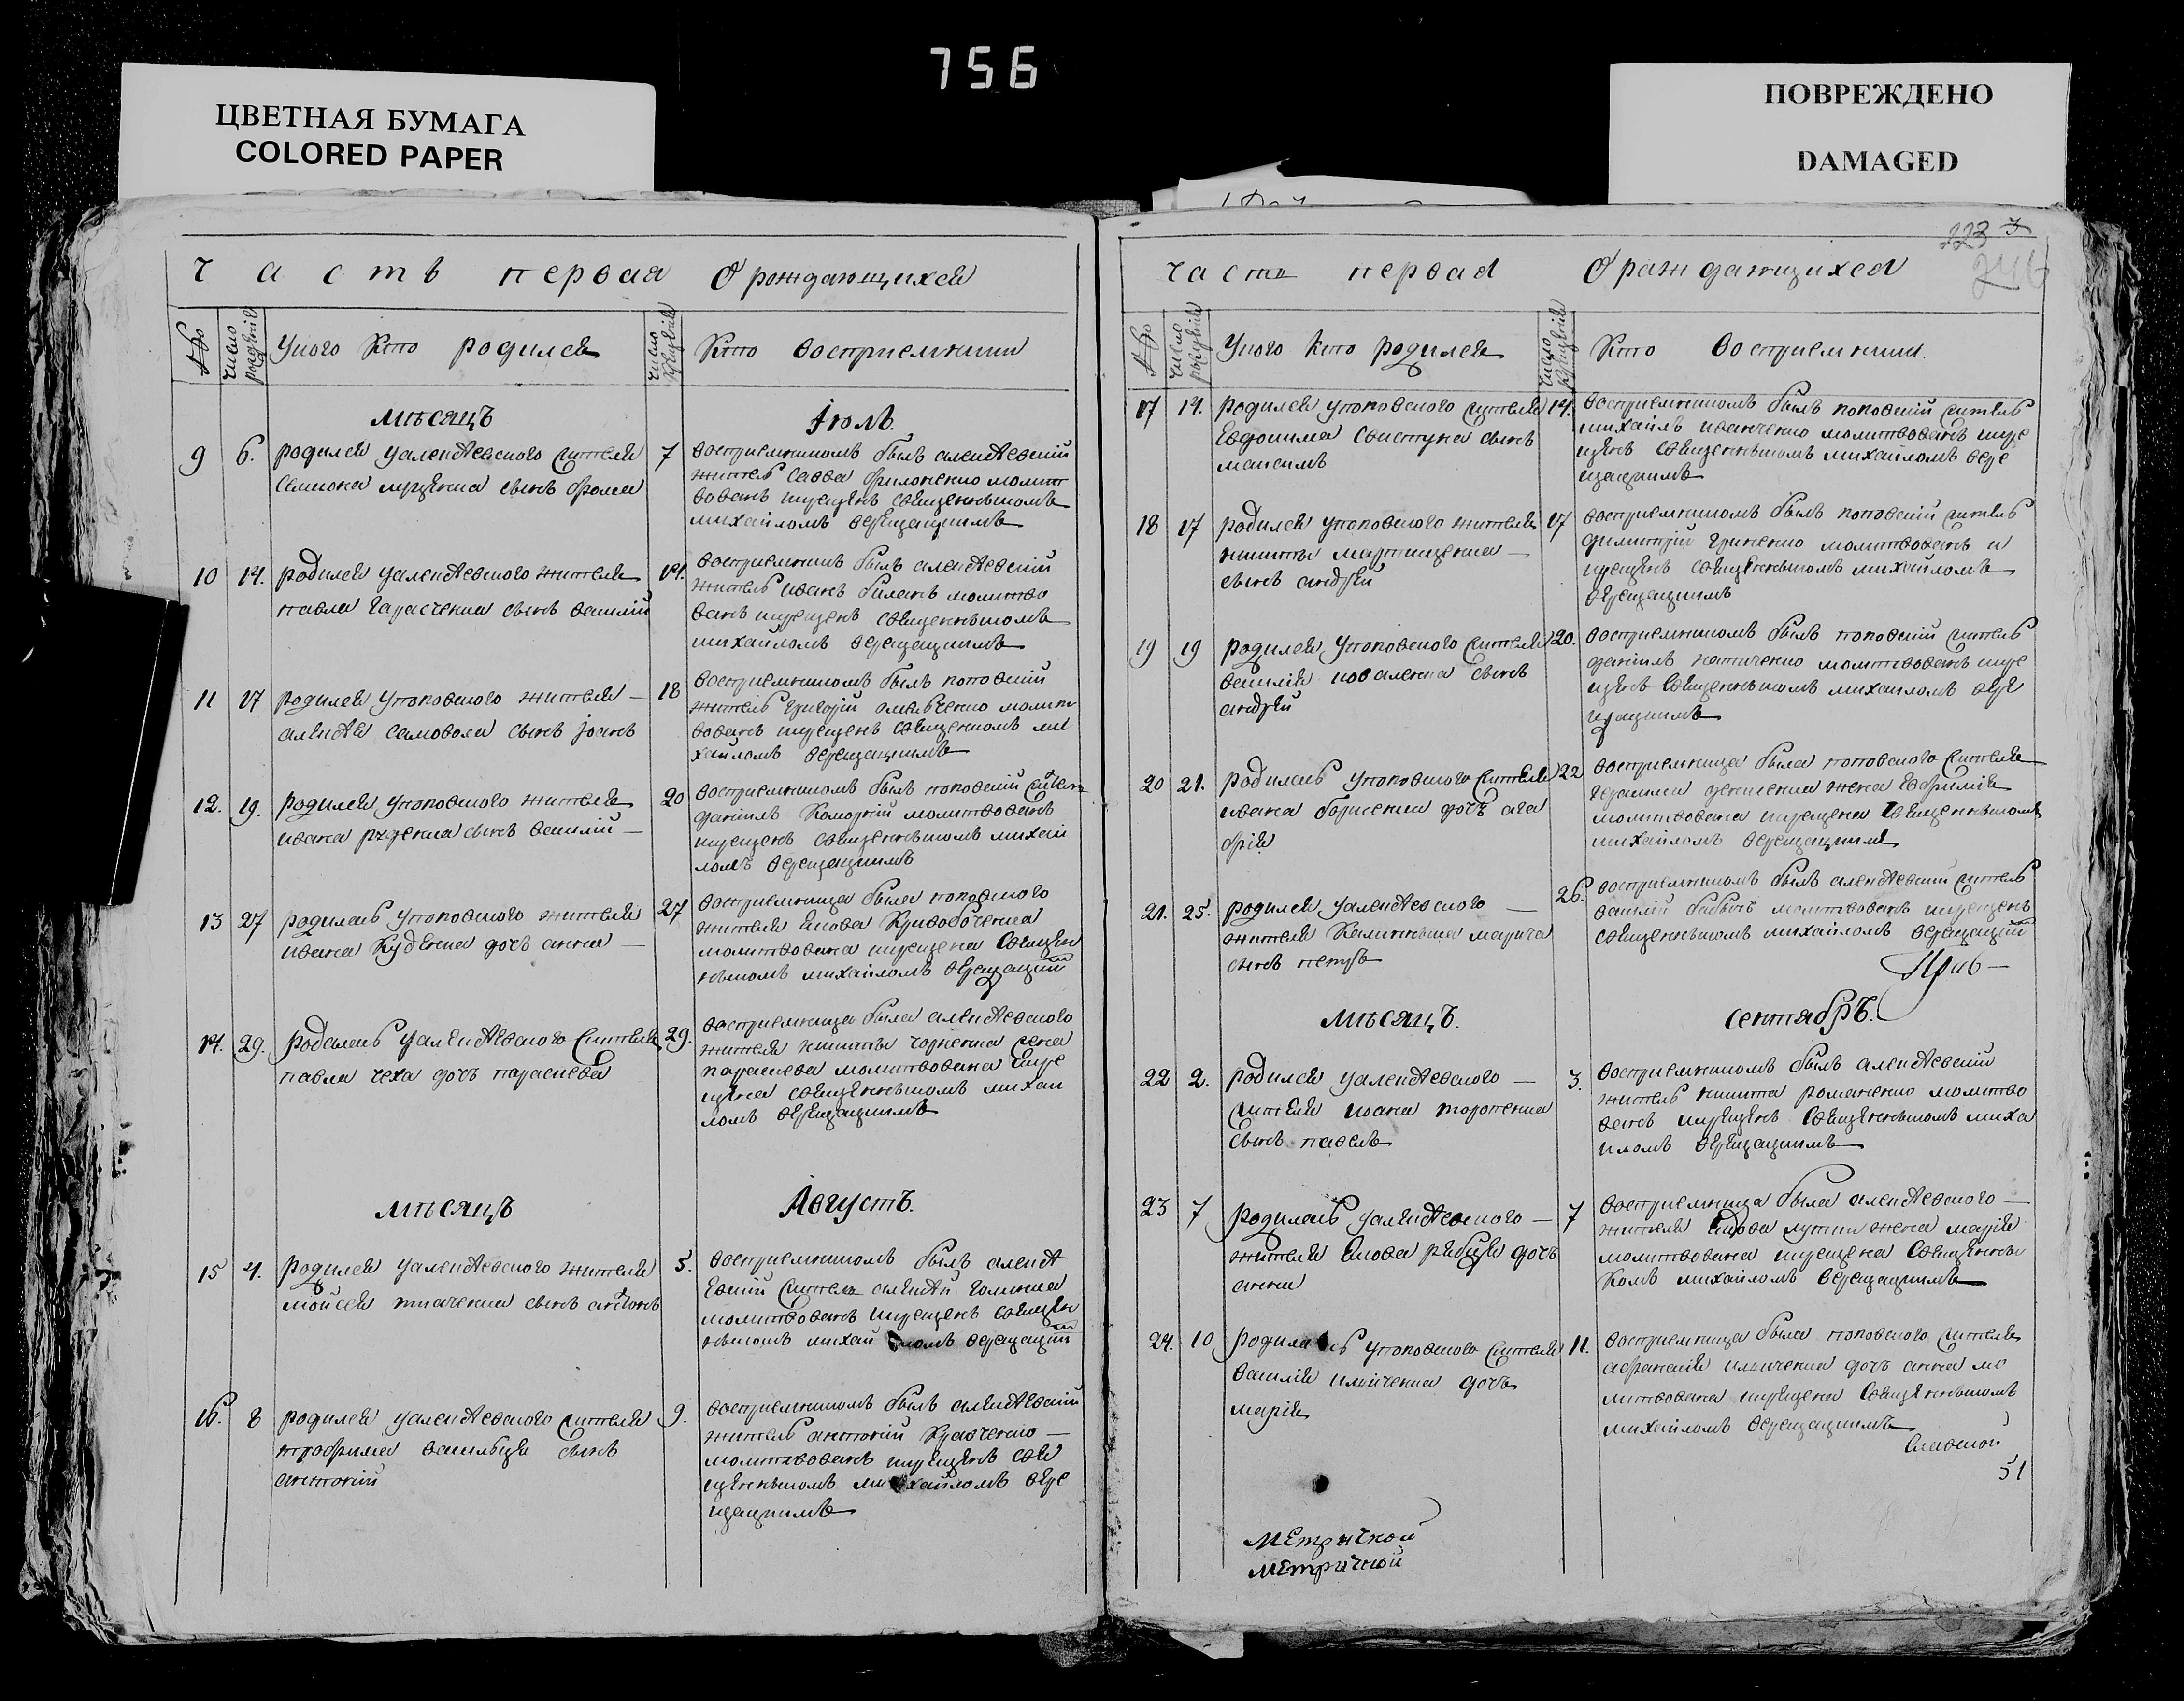 756
ЦВЕТНАЯ БУМАГА
COLORED PAPER
ПОВРЕЖДЕНО
DAMAGED
Часть первая О рождающихся
№
число рождения
У кого кто родился
число крещения
Кто восприемники
мѣсяцъ Iюль.
9 6. родился у алексѣевского жителя
сын
7 восприемником былъ алексѣевский
житель савва филоненко молит
вованъ и крещенъ священникомъ
михайломъ верещацкимъ
10 14. родился у алексѣевского жителя
павла гарасченка сынъ василий
14. восприемник былъ алексѣевский
житель иванъ билань молитво
ванъ и крещенъ священникомъ
михайломъ верещацкимъ
11 17 родился у поповского жителя
алексѣя самовола сынъ iоанъ
18 восприемникомъ былъ поповский
житель григорий молит
вованъ и крещенъ священикомъ ми
хайломъ верещацкимъ
12. 19. родился у поповского жителя
ивана руденка сынъ василий
20 восприемникомъ былъ поповский житель
даниилъ молитвованъ
и крещенъ священникомъ михай
ломъ верещацкимъ
13 27 родилась у поповского жителя
ивана Куденка дочь анна
27 восприемница была поповского
жителя якова Кривобоченка
молитвована и крещена священ
никомъ михайломъ верещацким
14. 29. родилась у алексѣевского жителя
павла чеха дочь параскева
29. восприемница была алексѣевского
жителя никиты жена
параскева молитвована и кре
щена священникомъ михаи
ломъ верещацкимъ
мѣсяцъ Августъ.
15 4. родился у алексѣевского жителя
мойсея ткаченка сынъ антонъ
5. восприемникомъ былъ алексѣ
евский житель алексѣй
молитвованъ и крещенъ священ
никомъ михайломъ верещацким
16. 8 родился у алексѣевского жителя
трофима сынъ
антоний
9. восприемникомъ былъ алексѣевский
житель антоний Кравченко
молитвованъ и крещенъ свя
щенникомъ михайломъ вере
щацкимъ
223
часть первая О раждающихся
№
число рождения
У кого кто родился
число крещения
Кто восприемники.
17 14. родился у поповского жителя
Евдокима свистуна сынъ
максимъ
14. восприемникомъ былъ поповский житель
михаилъ иванченко молитвованъ и кре
щенъ священникомъ михайломъ вере
щацкимъ
18 17 родился у поповского жителя
никиты мартищенка
сынъ андрей
17 восприемникомъ былъ поповский житель
димитрий гриненко молитвованъ и
крещенъ священникомъ михайломъ
верещацкимъ
19 19 родился у поповского жителя
василия коваленка сынъ
андрей
20. восприемникомъ былъ поповский житель
даниилъ молитвованъ и кре
щенъ священникомъ михаиломъ вере
щацкимъ
20 21. родилась у поповского жителя
ивана борисенка дочь ага
фия
22 восприемница была поповского жителя
герасима денисенка жена Евфимия
молитвована и крещена священникомъ
михайломъ верещацким
21. 25. родился у алексѣевского
жителя
сынъ петръ
26. восприемникомъ былъ алексѣевский житель
василий молитвованъ и крещенъ
священникомъ михайломъ верещацкий
мѣсяцъ. сентябръ.
22 2. родился у алексѣевского
жителя ивана
сынъ павелъ
3. восприемникомъ былъ алексѣевский
житель никита романенко молитво
ванъ и крещенъ священникомъ миха
иломъ верещацкимъ
23 7 родилась у алексѣевского
жителя якова дочь
анна
7 восприемница была алексѣевского
жителя жена мария
молитвована и крещена священни
комъ михайломъ верещацкимъ
24. 10 родилась у поповского жителя
василия ильиченка дочь
мария
11. восприемница была поповского жителя
афанасия ильиченка дочь анна мо
литвована и крещена священникомъ
михайломъ верещацкимъ
51
Метрическои
Метричнои